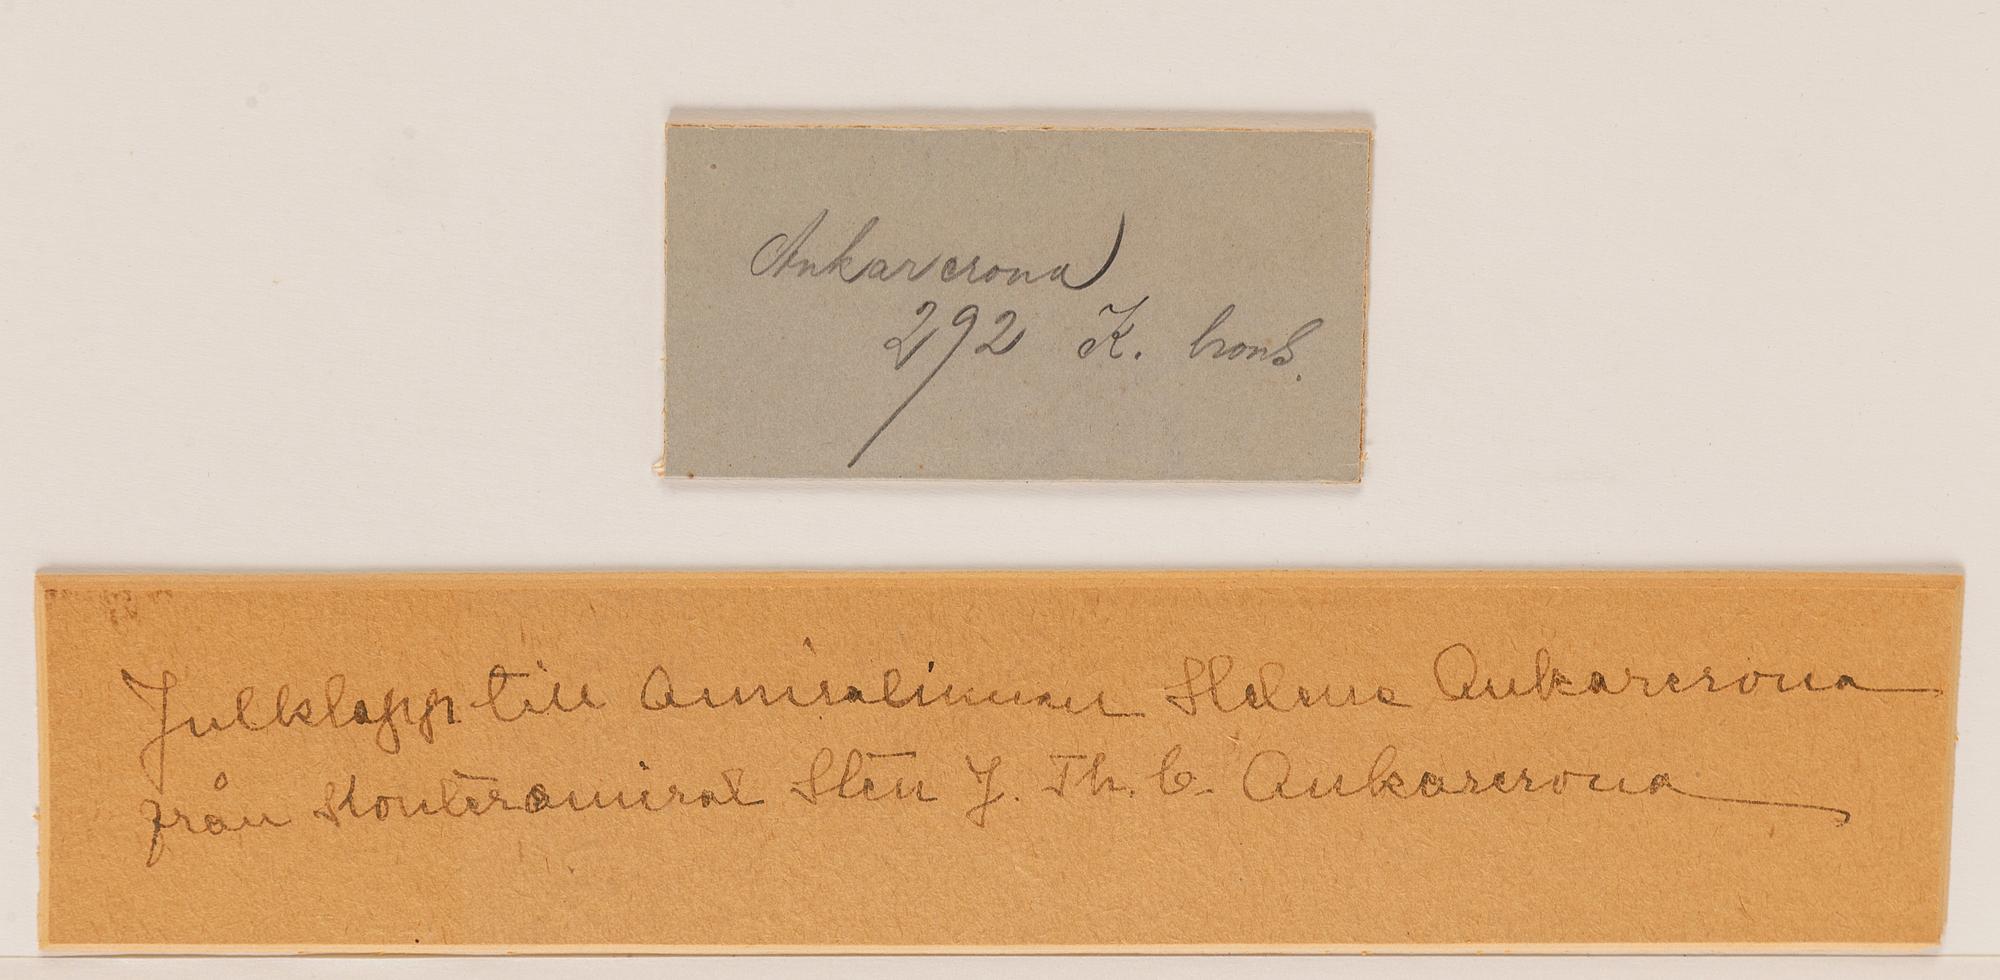 Ankarcrona
292 K. brons.
Julklapp till Amiralinnan Helene Ankarcrona
från Konteramiral Sten J. Th. C. Ankarcrona